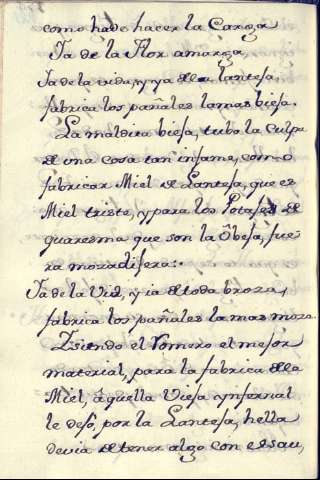 como hade hacer la Carga
Ia de la Flor amarga,
Ia de la vida, y ya de la Lantefa,
fabrica los pañales la mas biefa.
La maldita biefa, tubo la culpa
de una cosa tan infame, como
fabricar Miel de Lantefa, que es
Miel triste, y para los Potafes de
quaresma que son la Obefa, fue
ra mas
Ia de la Vid, y ia de toda broza,
fabrica los pañales la mas moza
Isiendo el Romero el mejor
material, para la fabrica de la
Miel, aquella Viefa ynfernal
le defó, por la Lantefa, hella
devia de tener algo con esau,